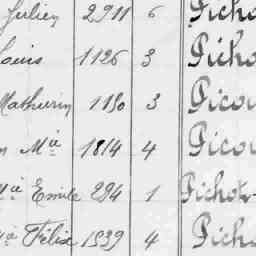 Julien 2911 6 Picho
Louis 1126 3 Picho
Mathurin 1180 3 Picou
n Mie 1814 4 Picou
Mie Emile 294 1 Pichot
Mie Félix 1939 4 Picho